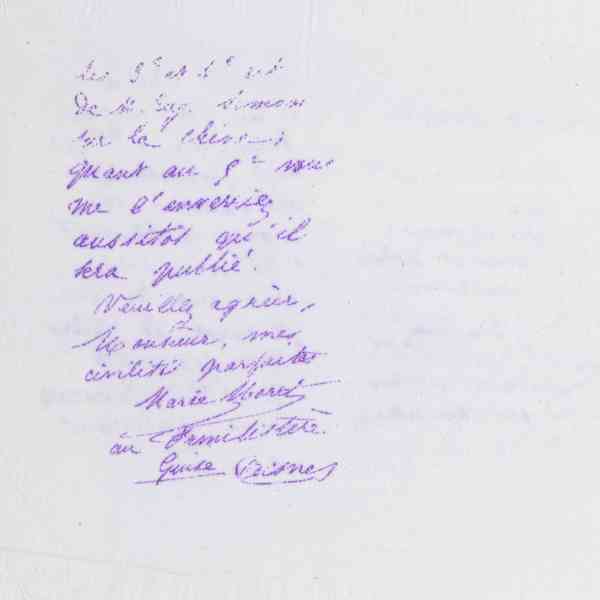 les 3e et 4e
de M. Eug. Simon
sur la Chine;
quant au 5e vous
me l'enverriez
aussitôt qu'il
sera publié.
Veuillez agréer,
Monsieur, mes
civilités parfaites
Marie Moret
au Familistère
Guise (Aisne)